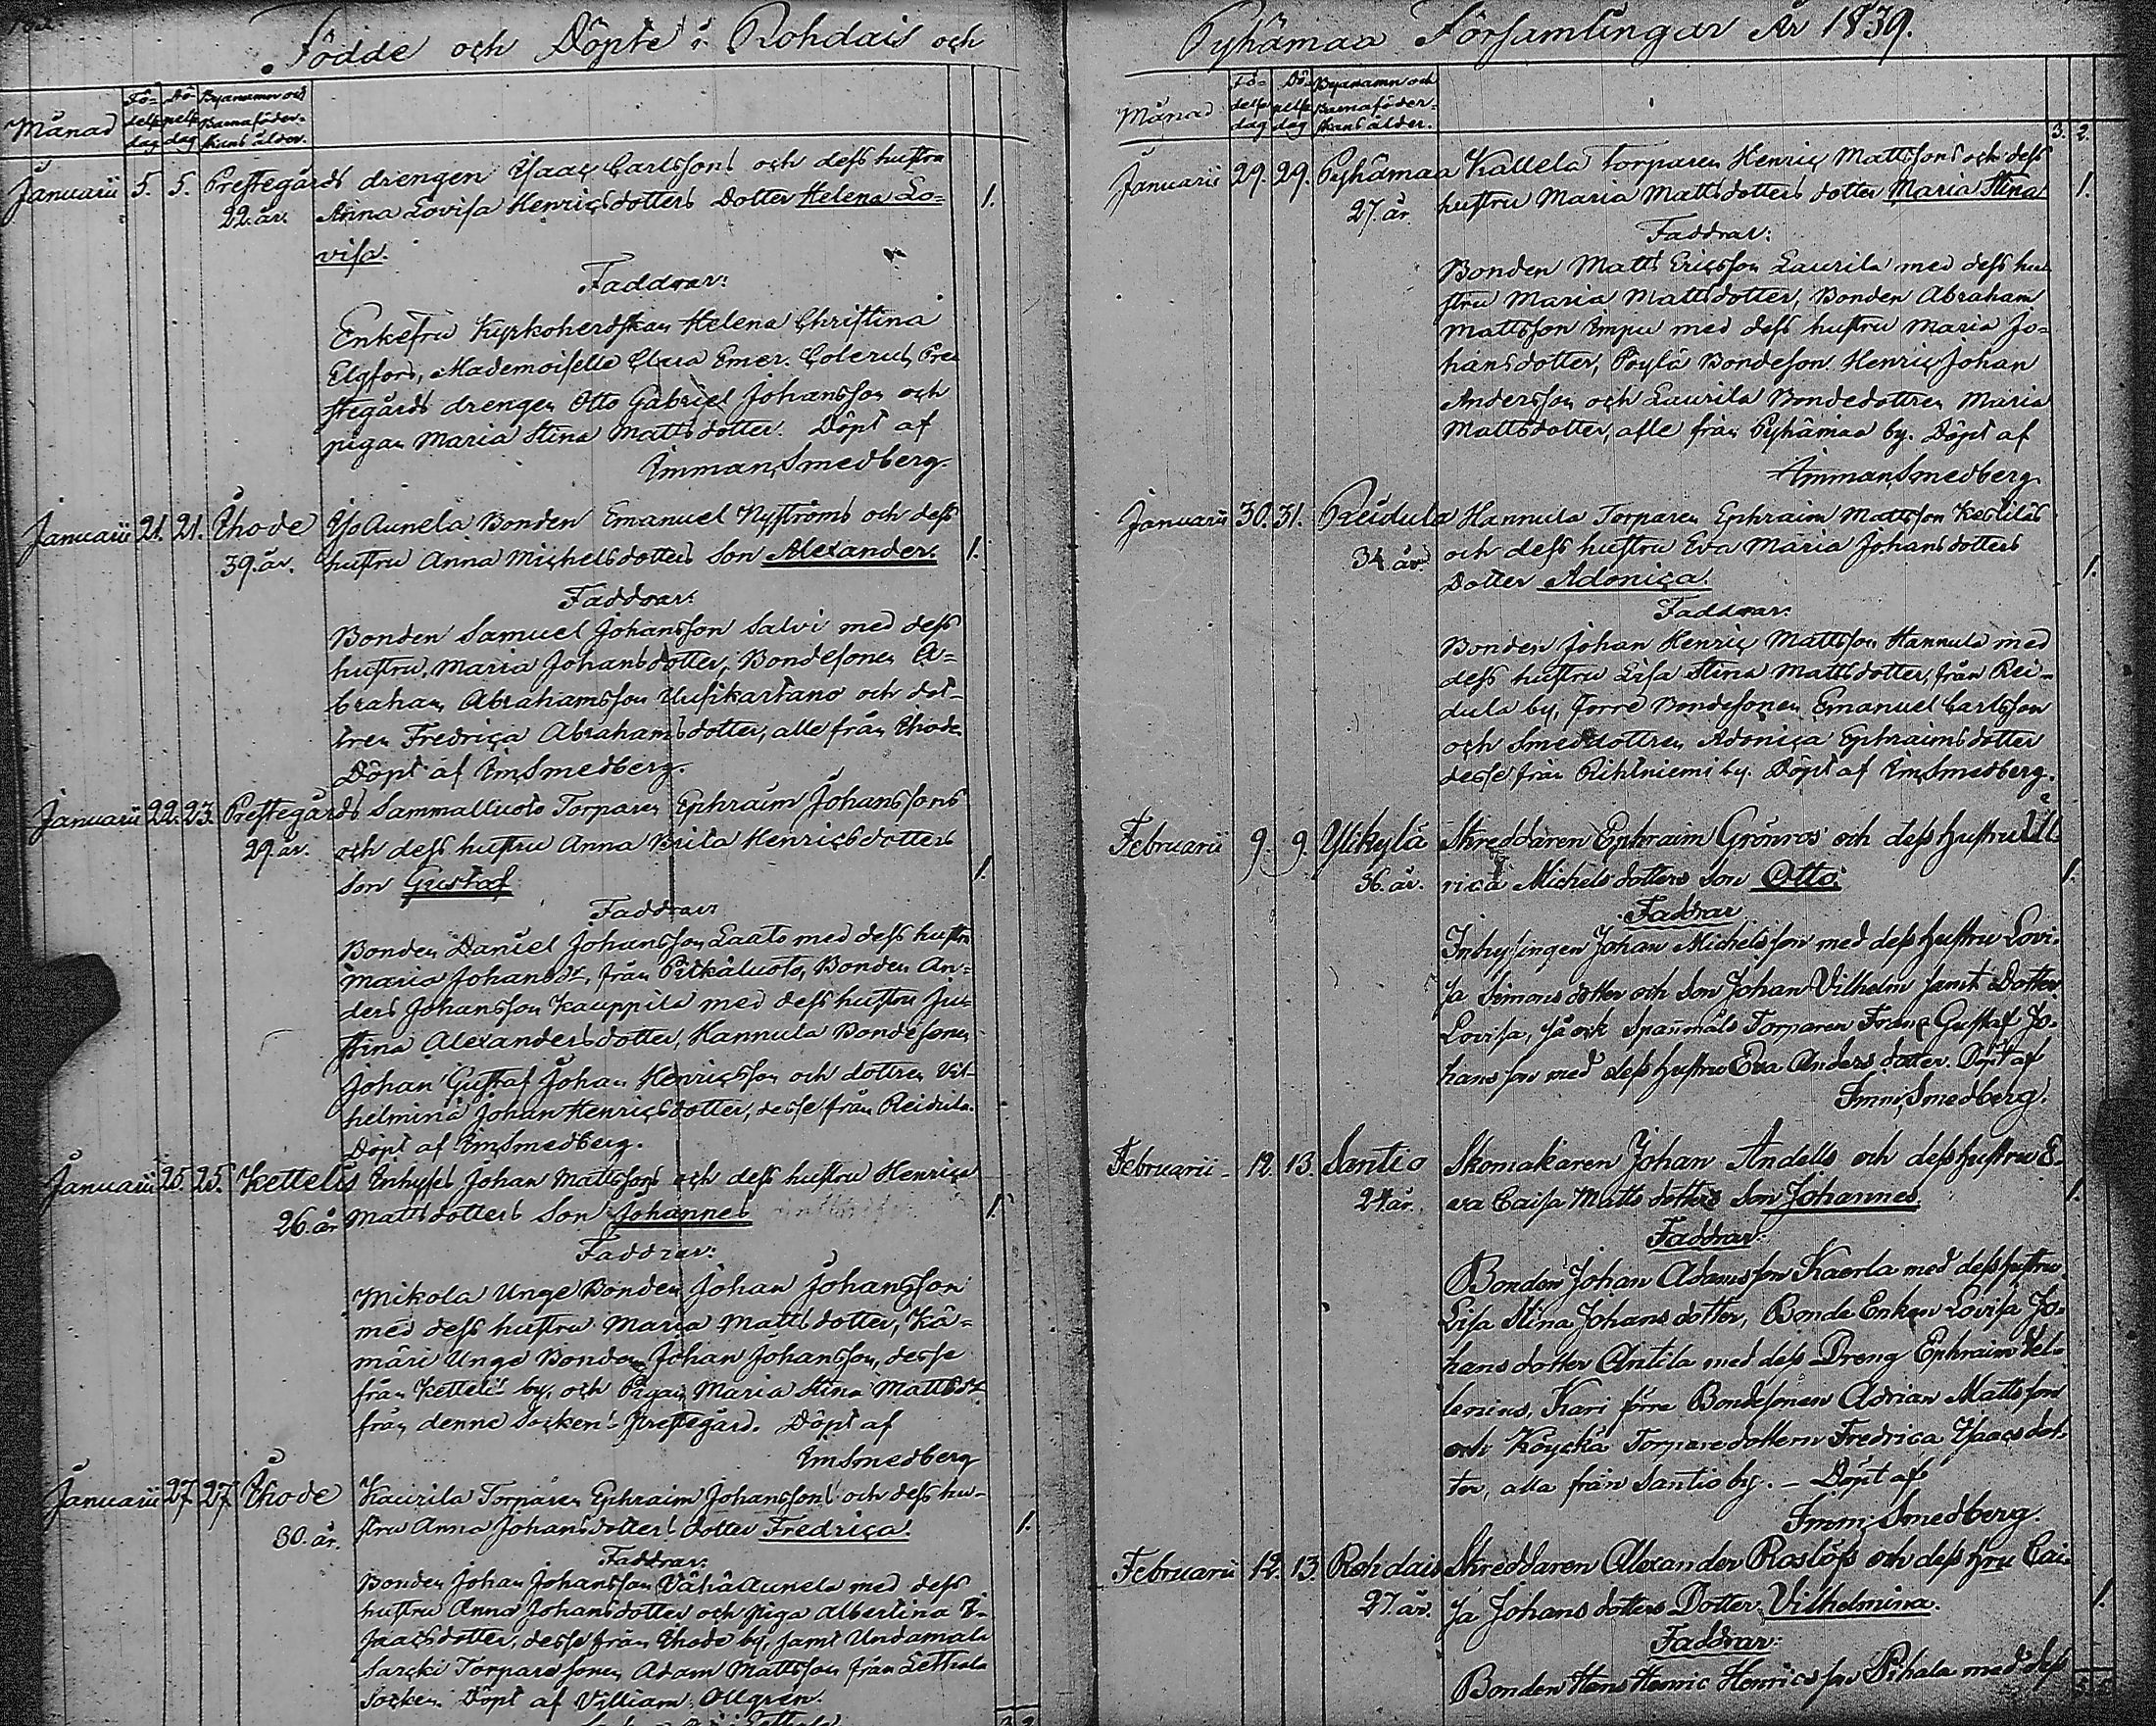 Födde och Döpte i Rohdais och
Månad
Fö-
delse
dag
Dö-
pelse
dag
Byanamn och
Barnaföder-
skans ålder.
Januarii 5. 5. Prestegårds drengen Isaac Carlssons och dess hustru
22. år. Anna Lovisa Henricsdotters Dotter Helena Lo-
visa. 1.
Faddrar:
Enkefru Kyrkoherdskan Helena Christina
Elgfors, Mademoiselle Clara Emer. Colerus, Pre-
stegårds drengen Otto Gabriel Johansson och
pigan Maria Stina Mattsdotter. Döpt af
Imman. Smedberg.
Januarii 21. 21. Ihode IsoAunela Bonden Emanuel Nyströms och dess
39. år. hustru Anna Michelsdotters Son Alexander. 1.
Faddrar:
Bonden Samuel Johansson Salvi med dess
hustru, Maria Johansdotter, Bondesonen A-
braham Abrahamsson Uusikartano och dot-
tren Fredrica Abrahamsdotter, alle från Ihode.
Döpt af Im. Smedberg.
Januarii 22. 23. Prestegårds Sammalluoto Torparen Ephraim Johanssons
29. år. och dess hustru Anna Brita Henricsdotters
Son Gustaf 1.
Faddrar
Bonden Daniel Johansson Laato med dess hustru
Maria Johansdr, från Pitkäluoto, Bonden An-
ders Johansson Kauppila med dess hustru Ju-
stina Alexandersdotter, Hannula Bondesonen
Johan Gustaf Johan Henricsson och dottren Vil-
helmina Johan Henricsdotter, desse från Reidula.
Döpt af Im. Smedberg.
Januarii 25 25. Kettelis Inhyses Johan Mattssons och dess hustru Henrica
26. år Mattsdotters Son Johannes 1.
Faddrar:
Mikola Unge Bonden Johan Johansson
med dess hustru Maria Mattsdotter, Kä-
märi Unge Bonden Johan Johansson, desse
från Kettelis by, och Pigan Maria Stina Mattsdr
från denne Sockens Prestegård. Döpt af
Im Smedberg
Januarii 27. 27. Ihode Kaurila Torparen Ephraim Johanssons och dess hu-
30. år. stru Anna Johansdotters dotter Fredrica. 1.
Faddrar:
Bonden Johan Johansson VähäAunela med dess
hustru Anna Johansdotter och piga Albertina I-
saacsdotter, desse från Ihode by, samt Undamala
Sarcki Torparesonen Adam Mattsson från Lethala
Socken. Döpt af Villiam Ollgren.
Pyhämaa Församlingar År 1839.
Månad
Fö-
delse
dag
Dö-
pelse
dag
Byanamn och
Barnaföder-
skans ålder.
3. 2.
Januarii 29. 29. Pyhämaa Kallela Torparen Henric Mattssons och dess
27. år. hustru Maria Mattsdotters dotter Maria Stina 1.
Faddrar:
Bonden Matts Ericsson Laurila med dess hu-
stru Maria Mattsdotter, Bonden Abraham
Mattsson Impu med dess hustru Maria Jo-
hansdotter, Pöylä Bondeson Henric Johan
Andersson och Laurila Bondedottren Maria
Mattsdotter, alle från Pyhämaa by. Döpt af
Imman. Smedberg
Januarii 30. 31. Reidula Hannula Torparen Ephraim Mattsson Kestiläs
34. år. och dess hustru Eva Maria Johansdotters
Dotter Adonica. 1.
Faddrar:
Bonden Johan Henric Mattsson Hannula med
dess hustru Lisa Stina Mattsdotter, från Rei-
dula by, Förre Bondesonen Emanuel Carlsson
och Smeddottren Adonica Ephraimsdotter
desse från Rihtniemi by. Döpt af Im. Smedberg.
Februarii 9. 9. Ylikylä Skreddaren Ephraim Grönros och dess hustru Ull-
36. år. rica Michelsdotters Son Otto. 1.
Faddrar
Inhysingen Johan Michelsson med dess hustru Lovi-
sa Simonsdotter och Son Johan Vilhelm samt Dotter
Lovisa, så ock Spannmåls Torparen Franz Gustaf Jo-
hansson med dess hustru Eva Andersdotter. Döpt af
Imm. Smedberg.
Februarii 12. 13. Santio Skomakaren Johan Andells och dess hustru E-
24. år. va Caisa Mattsdotters Son Johannes. 1.
Faddrar:
Bonden Johan Adamsson Kaerla med dess hustru
Lisa Stina Johansdotter, Bonde Enkan Lovisa Jo-
hansdotter Antila med dess Dreng Ephraim Vel-
lenius, Kari förre Bondesonen Adrian Mattsson
ochKöyckä Torparedottern Fredrica Isaacsdot-
ter, alla från Santio by. – Döpt af
Imm. Smedberg.
Februarii 12. 13. Rohdais Skreddaren Alexander Roslöfs och dess hru Cai-
27. år. sa Johansdotters Dotter Vilhelmina. 1.
Faddrar:
Bonden Hans Henric Henricsson Pihala med dess